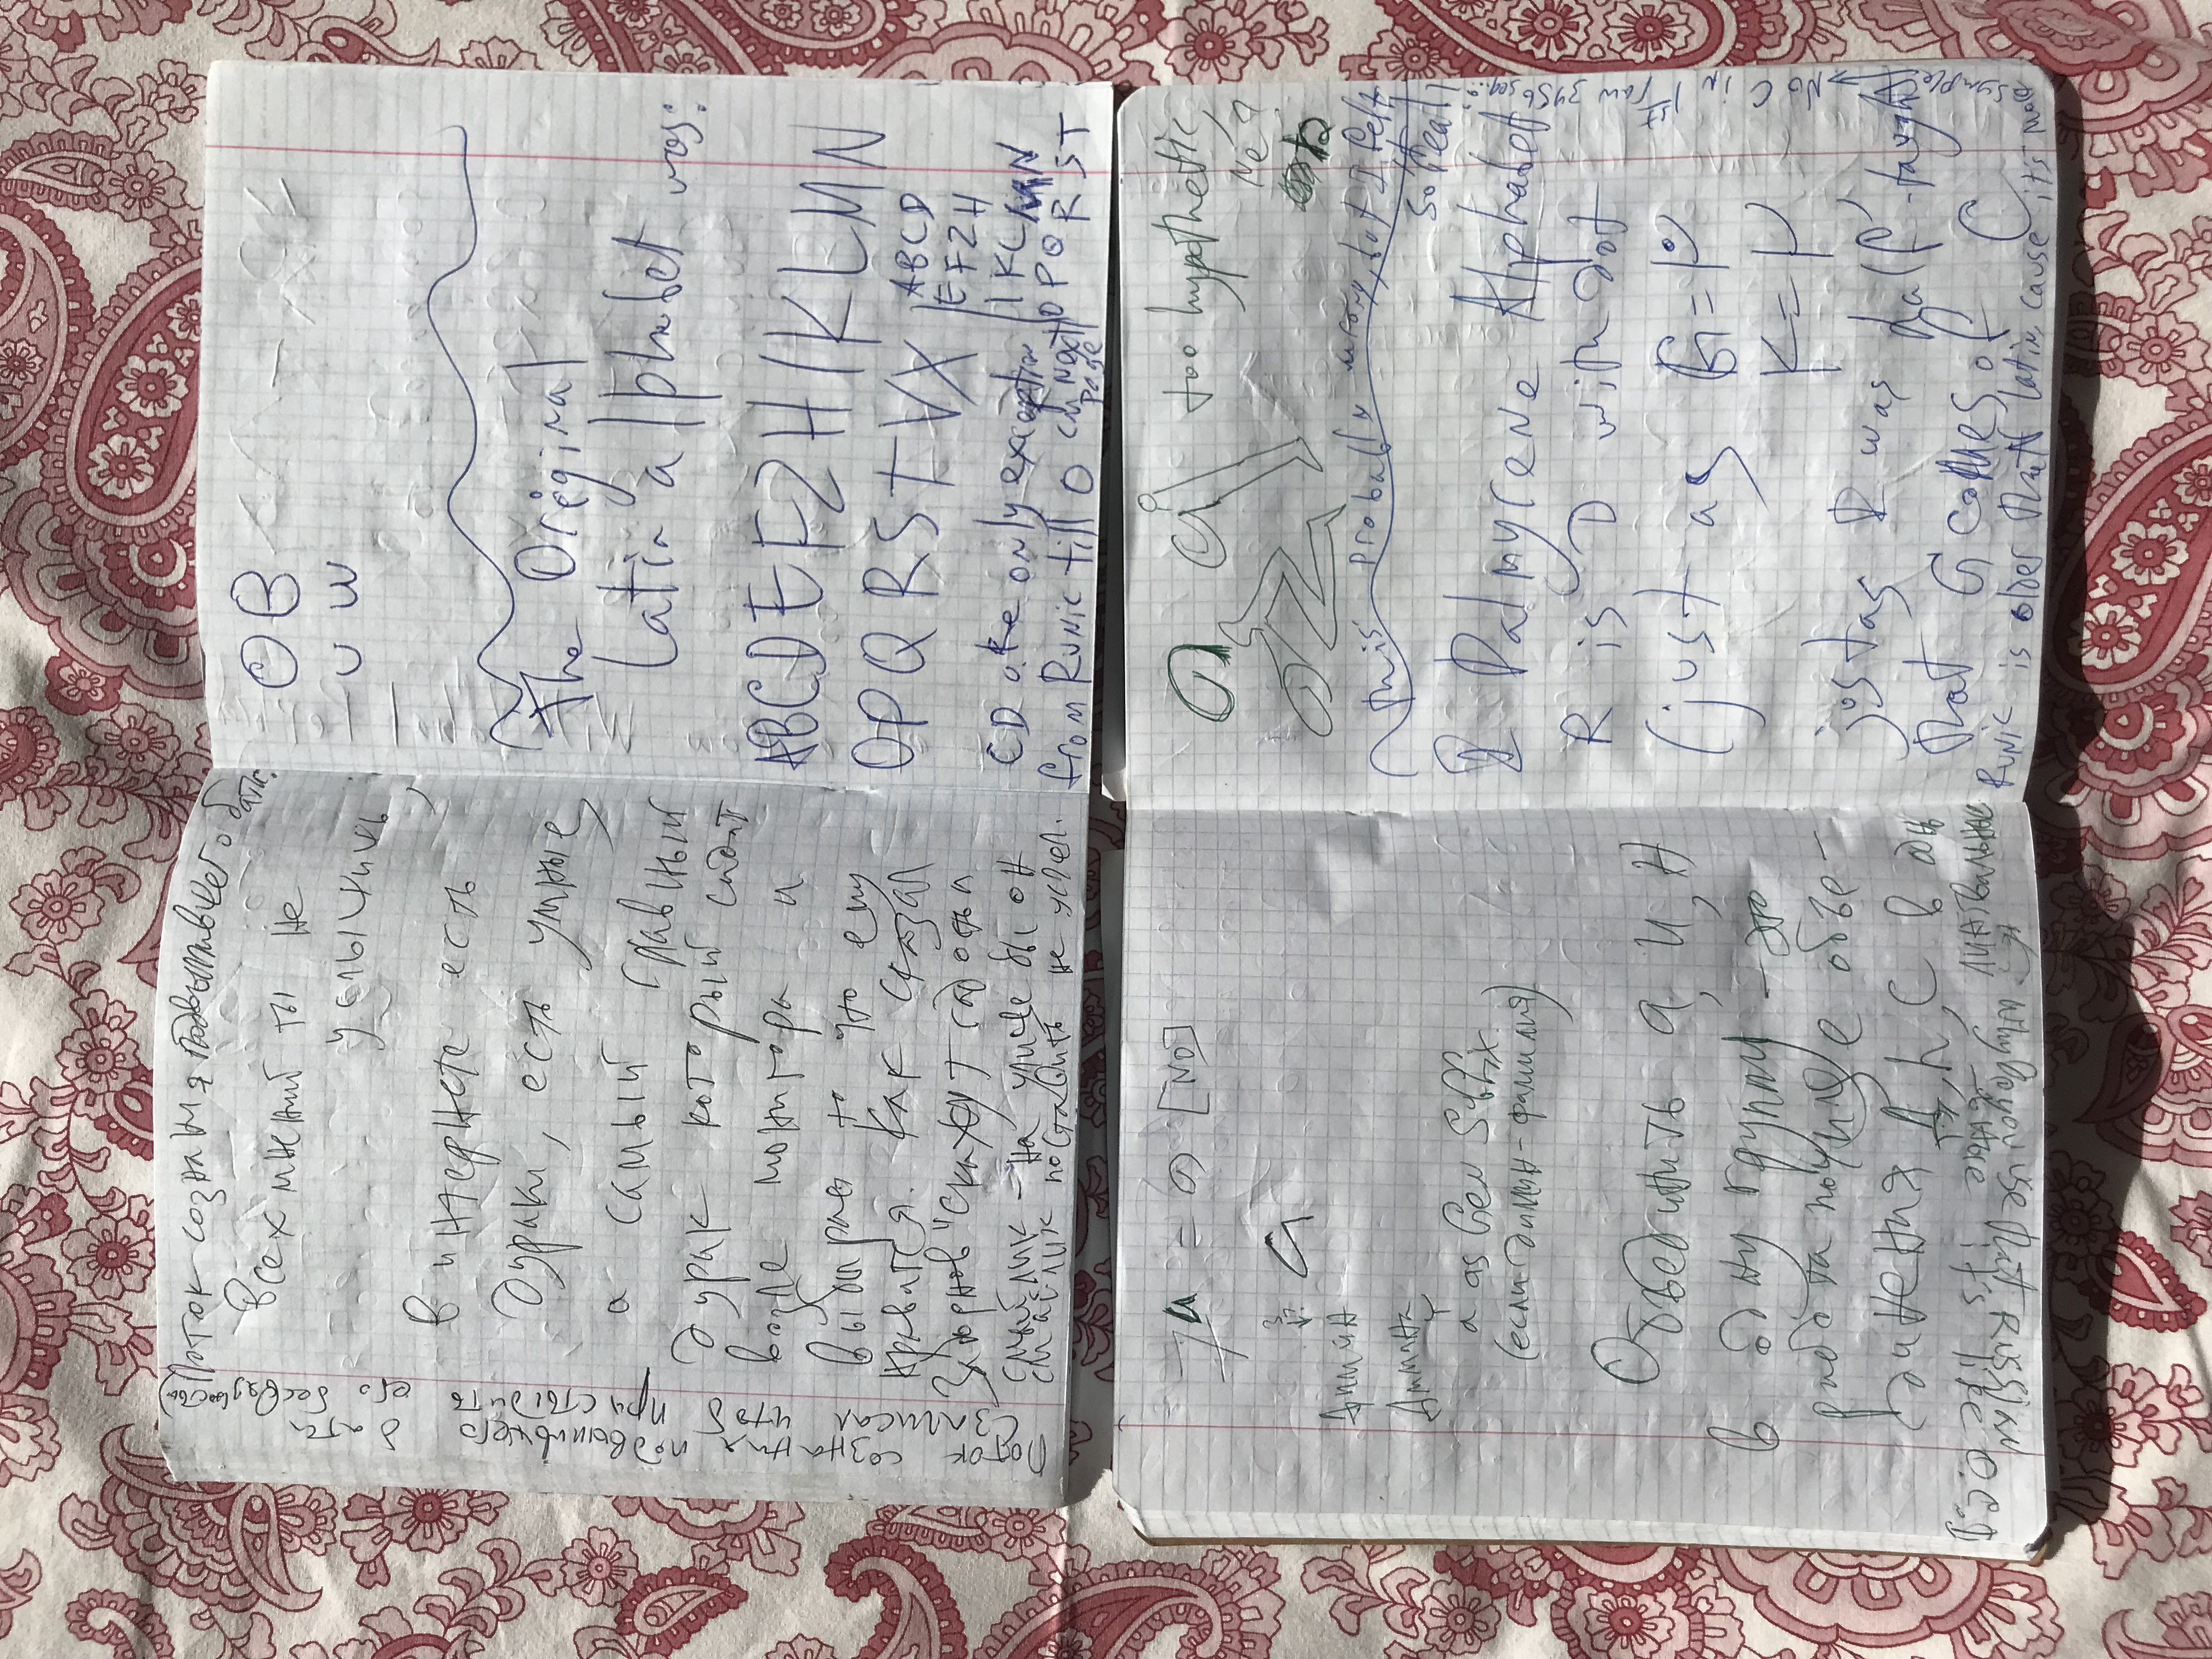 Поток сознания подвыпившего бати.
Всех мнений ты не
услышишь,
В интернете есть
дураки, есть умные,
а самый главный
дурак который сидит
возле монитора и
выбирает то что ему
нравится. Как сказал
Задорнов "скажут гадость и
смайлик – на улице бы он
смайлик поставить не успел.
Поток сознания подвыпившего бати
Записал чтоб пристыдить его бессвязность
O B
U W
The Original
Latin alphabet was:
ABCDEFZHIKLMN
OPQRSTVX
ABCD
EFZH
IKLMN
OPQ
RST
CD are only exception
from Runic till O
on Next
page
= [NO]
Димин
Димина
a as Gen Suffix
(если Димин - фамилия)
Объединить а, и, н
в одну группу – это
работа почище объе-
динения А, h, С в одн
why do you use that Russian
it's like O.C.D
too hypothetic,
Ne?
this probably wrong, but I felt
it
so real,
Palmyrene Alphabet
R is D with dot
(just as G =
K =
just as R was half-taught
that G comes of C
Runic is older than latin, cause it's more symple
NO C IN 1st row